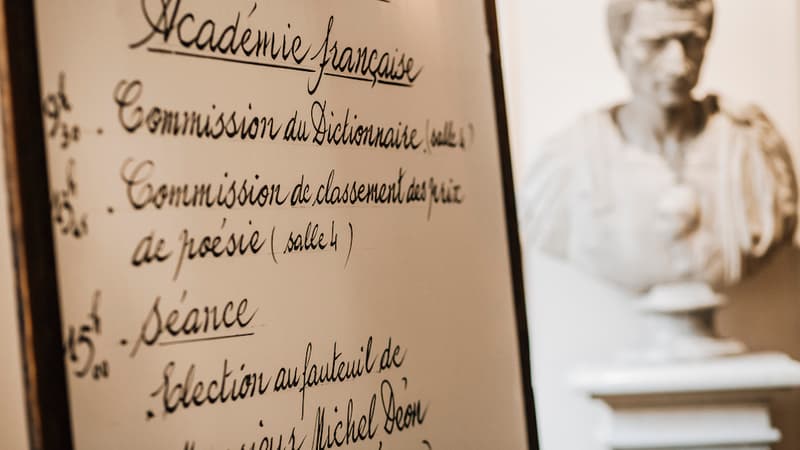 Académie française
9h30. Commission du Dictionnaire (salle 4)
. Commission de classement des prix
de poésie (salle 4)
15h00. Séance
. Election au fauteuil de
Michel Déon